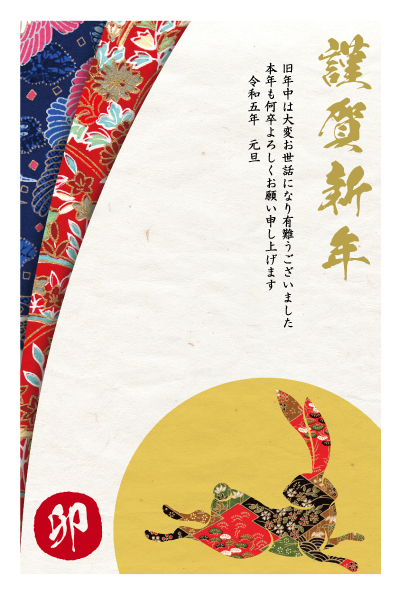 謹賀新年
旧年中は大変お世話になり有難うございました
本年も何卒よろしくお願い申し上げます
令和五年　元旦
卯